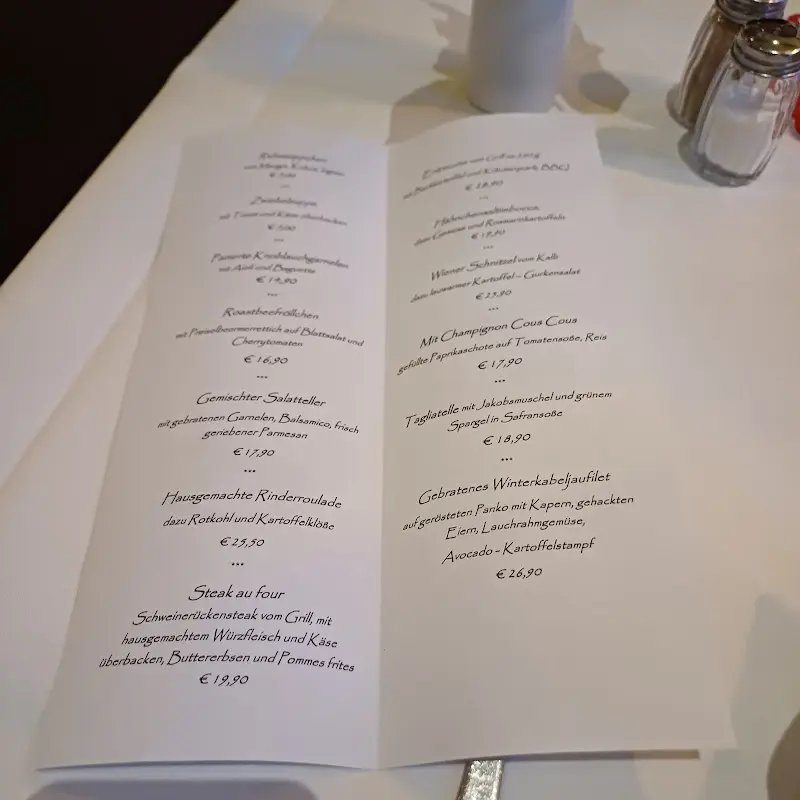 Zwiebelsuppe
mit Toast und Käse überbacken
€ 7,00
...
Panierte Knoblauchgarnelen
mit Aioli und Baguette
€ 14,90
...
Roastbeefröllchen
mit Preiselbeermerrettich auf Blattsalat und
Cherrytomaten
€ 16,90
...
Gemischter Salatteller
mit gebratenen Garnelen, Balsamico, frisch
geriebener Parmesan
€ 17,90
...
Hausgemachte Rinderroulade
dazu Rotkohl und Kartoffelklöße
€ 25,50
...
Steak au four
Schweinerückensteak vom Grill, mit
hausgemachtem Würzfleisch und Käse
überbacken, Buttererbsen und Pommes frites
€ 19,90
Entrecote vom Grill
€ 28,90
...
dazu Gemüse und Rosmarinkartoffeln
€ 19,90
...
Wiener Schnitzel vom Kalb
dazu lauwarmer Kartoffel – Gurkensalat
€ 25,90
...
Mit Champignon Cous Cous
gefüllte Paprikaschote auf Tomatensoße, Reis
€ 17,90
...
Tagliatelle mit Jakobsmuschel und grünem
Spargel in Safransoße
€ 18,90
...
Gebratenes Winterkabeljaufilet
auf gerösteten Panko mit Kapern, gehackten
Eiern, Lauchrahmgemüse,
Avocado - Kartoffelstampf
€ 26,90